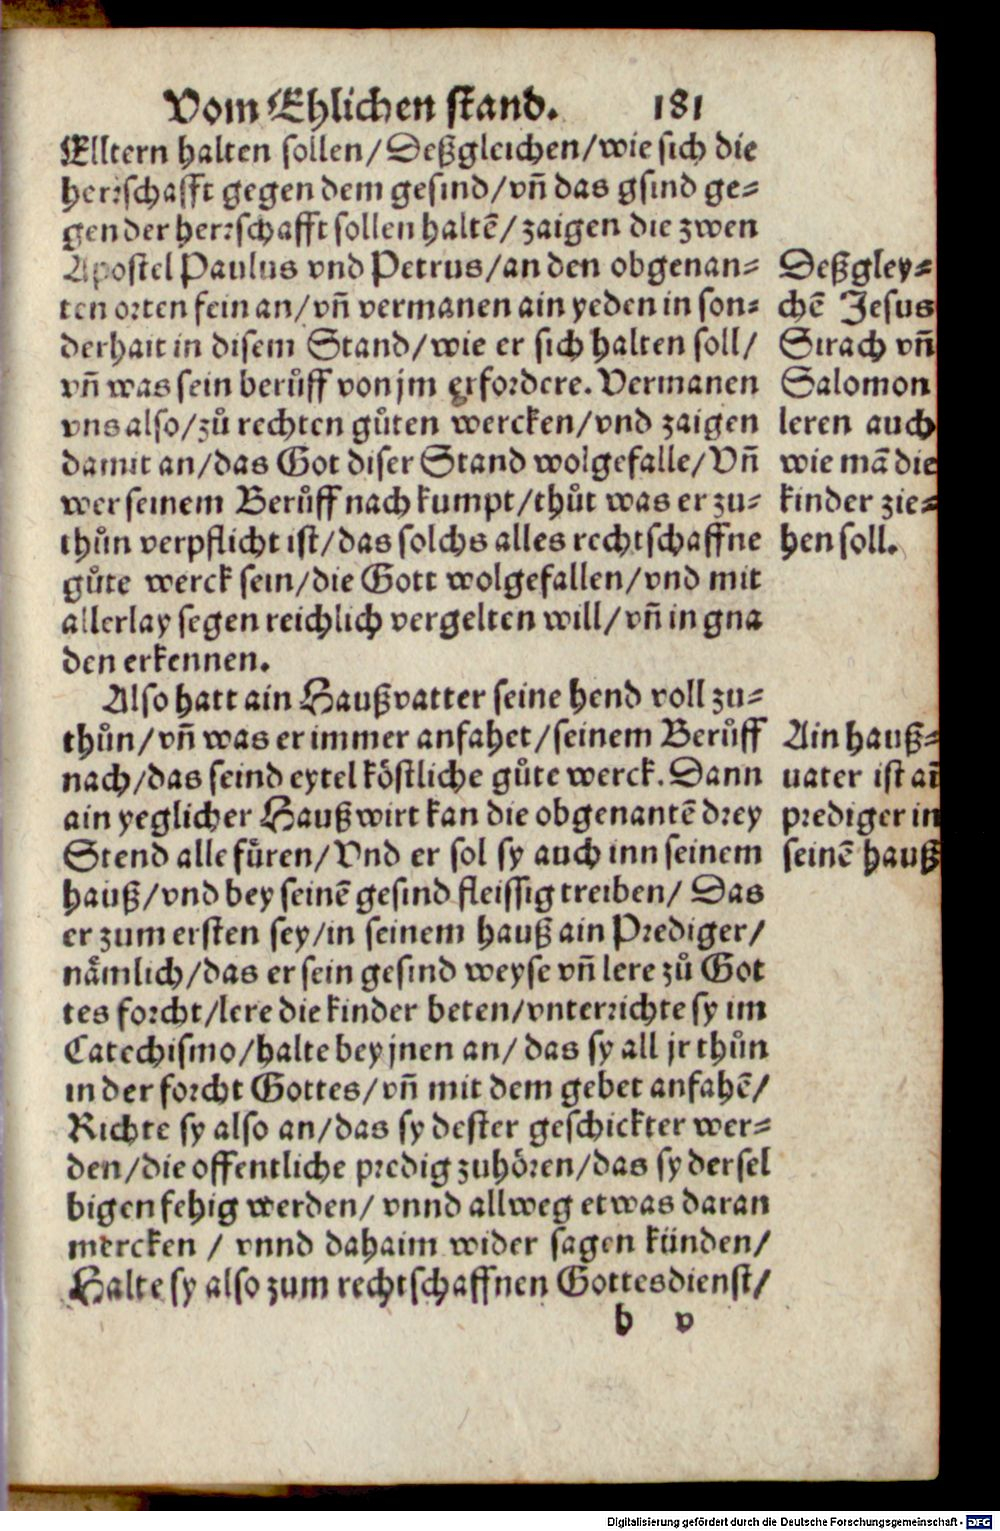 Vom Ehlichen stand. 181
Elltern halten sollen/Deßgleichen/wie sich die
herrschafft gegen dem gesind/vñ das gsind ge-
gen der herrschafft sollen haltẽ/zaigen die zwen
Apostel Paulus vnd Petrus/an den obgenan-
ten orten fein an/vñ vermanen ain yeden in son-
derhait in disem Stand/wie er sich halten soll/
vñ was sein berůff von jm erfordere. Vermanen
vns also/zů rechten gůten wercken/vnd zaigen
damit an/das Got diser Stand wolgefalle/Vñ
wer seinem Berůff nach kumpt/thůt was er zu-
thůn verpflicht ist/das solchs alles rechtschaffne
gůte werck sein/die Gott wolgefallen/vnd mit
allerlay segen reichlich vergelten will/vñ in gna
den erkennen.
Deßgley-
chẽ Jesus
Sirach vñ
Salomon
leren auch
wie mã die
kinder zie-
hen soll.
Also hatt ain Haußvatter seine hend voll zu-
thůn/vñ was er immer anfahet/seinem Berůff
nach/das seind eytel köstliche gůte werck. Dann
ain yeglicher Haußwirt kan die obgenantẽ drey
Stend alle füren/Vnd er sol sy auch inn seinem
hauß/vnd bey seinẽ gesind fleissig treiben/ Das
er zum ersten sey/in seinem hauß ain Prediger/
nämlich/das er sein gesind weyse vñ lere zů Got
tes forcht/lere die kinder beten/vnterrichte sy im
Catechismo/halte bey jnen an/ das sy all jr thůn
in der forcht Gottes/vñ mit dem gebet anfahẽ/
Richte sy also an/das sy dester geschickter wer-
den/die offentliche predig zuhören/das sy dersel
bigen fehig werden/ vnnd allweg etwas daran
mercken / vnnd dahaim wider sagen künden/
Halte sy also zum rechtschaffnen Gottesdienst/
Ain hauß-
uater ist aĩ
prediger in
seinẽ hauß
b v
Digitalisierung gefördert durch die Deutsche Forschungsgemeinschaft - DFG